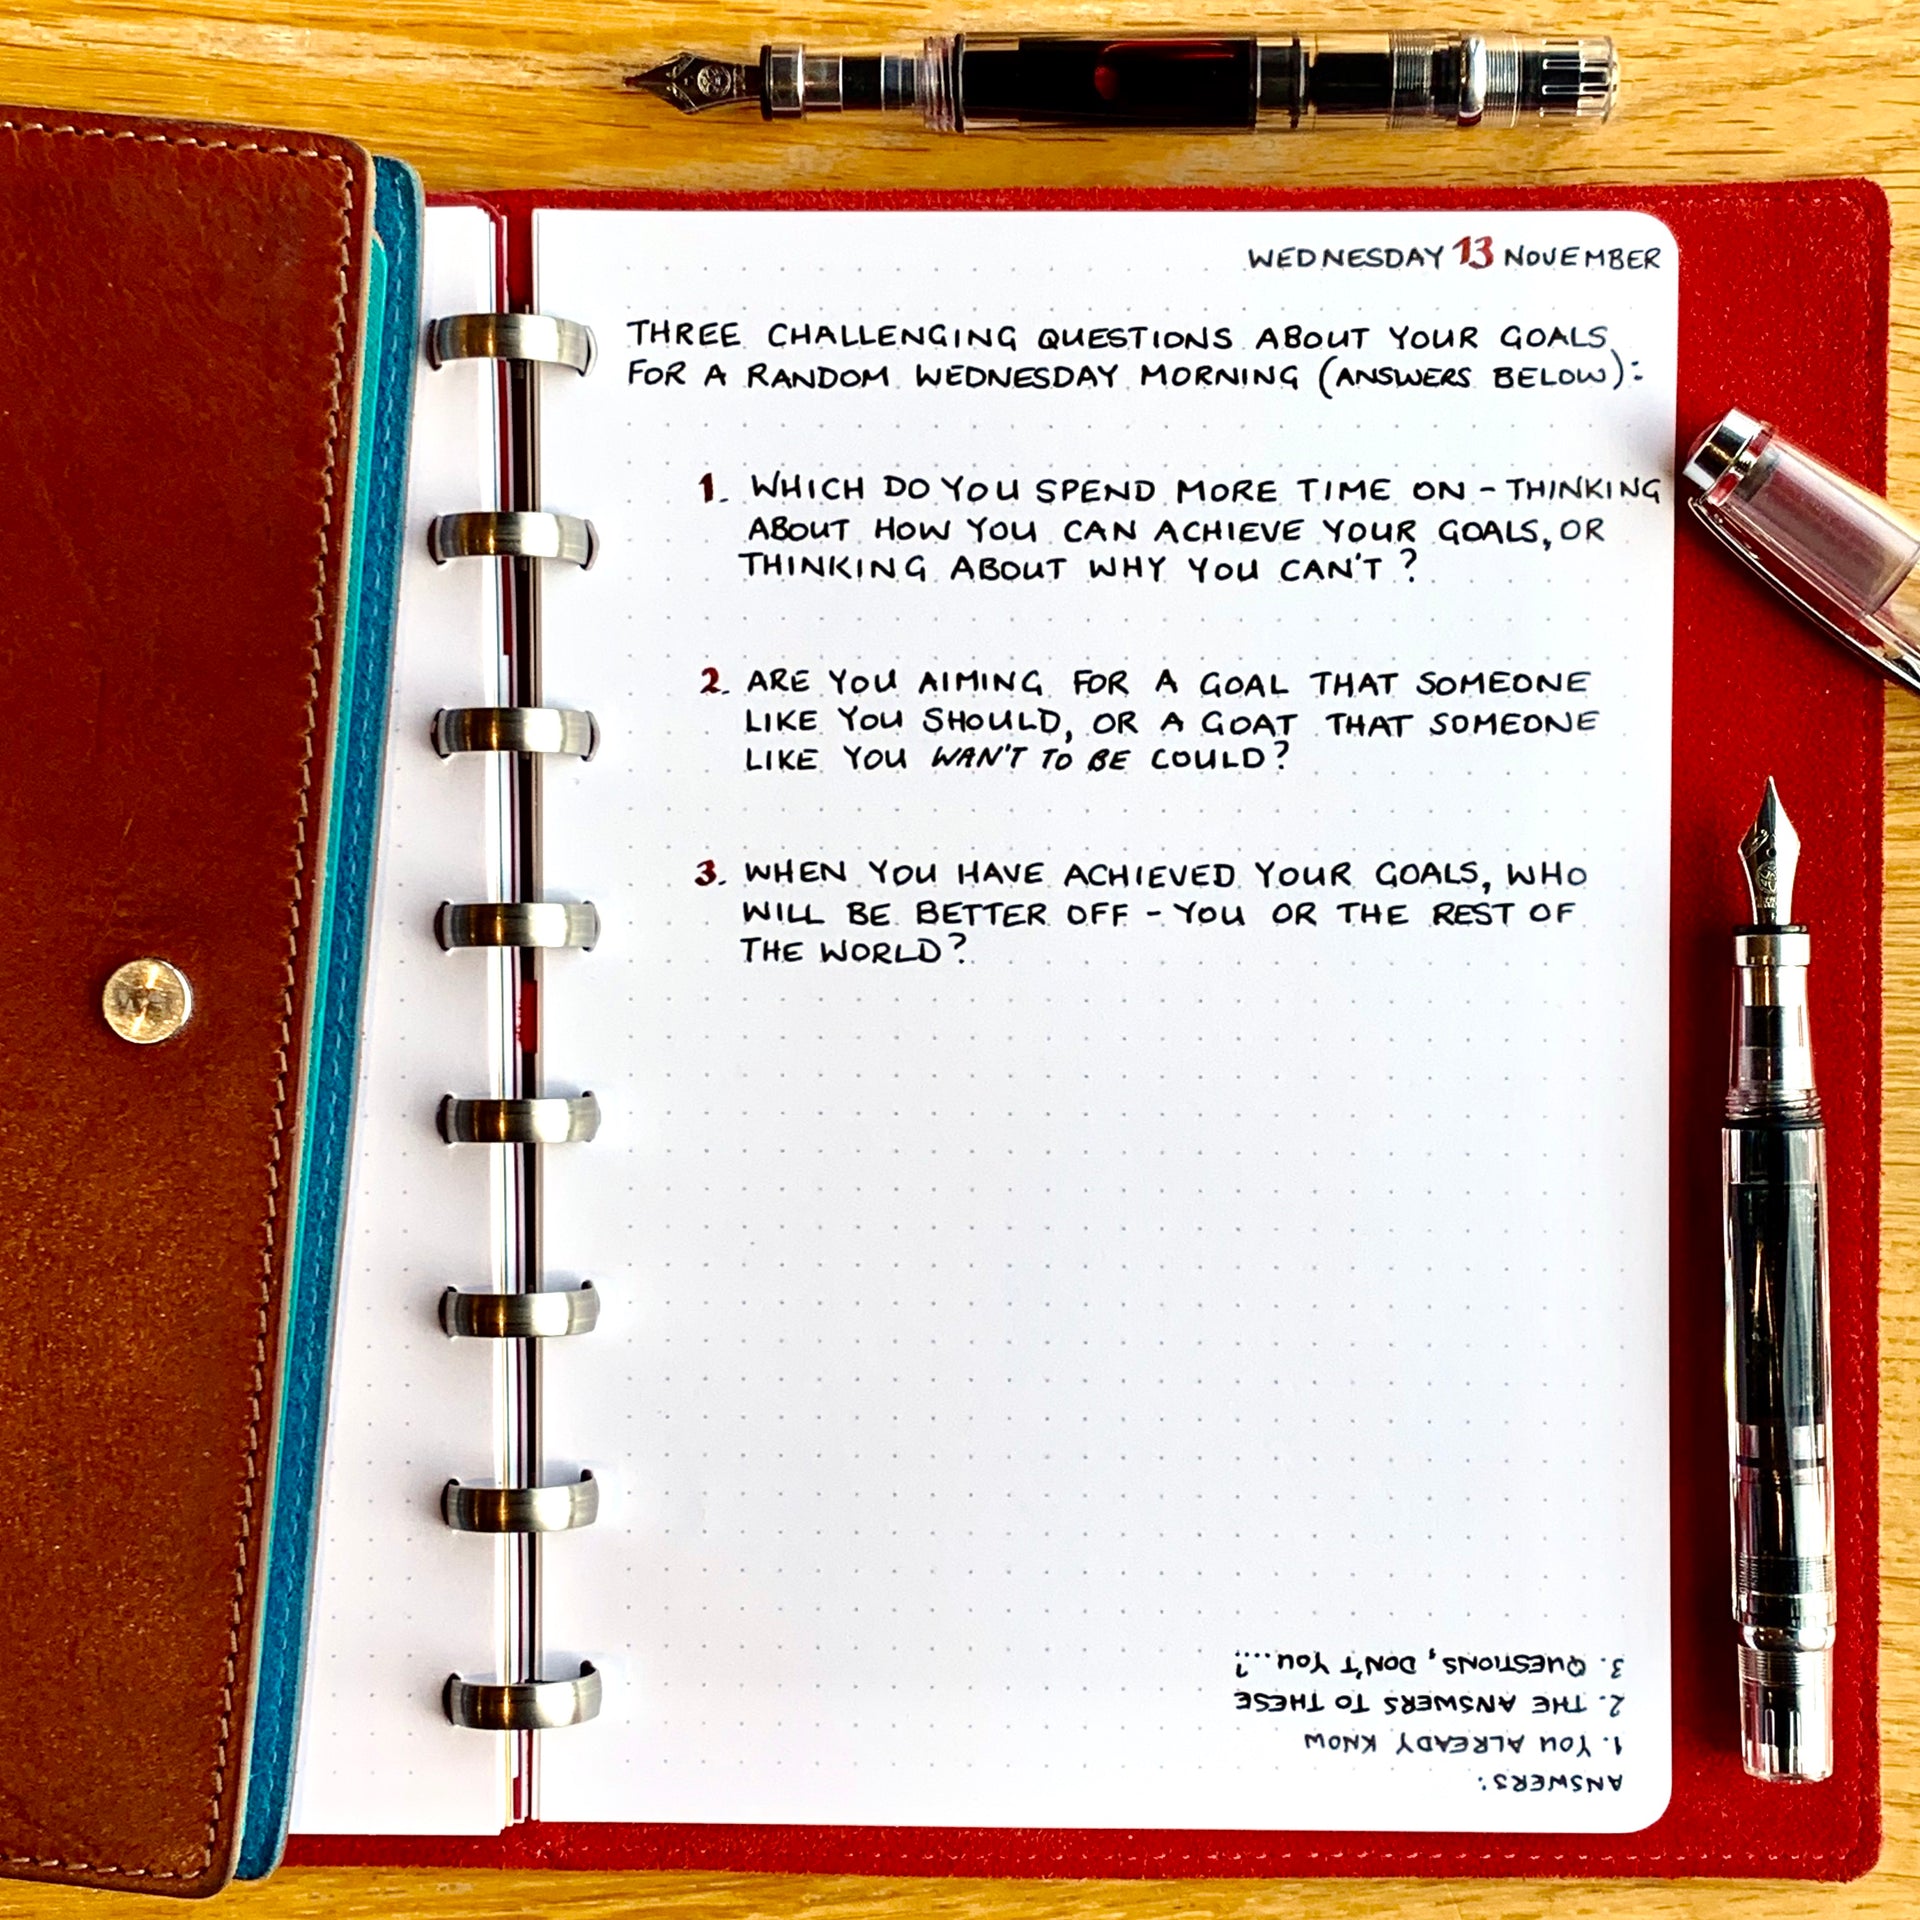 WEDNESDAY 13 NOVEMBER
THREE CHALLENGING QUESTIONS ABOUT YOUR GOALS
FOR A RANDOM WEDNESDAY MORNING (ANSWERS BELOW):
1. WHICH DO YOU SPEND MORE TIME ON - THINKING
ABOUT HOW YOU CAN ACHIEVE YOUR GOALS, OR
THINKING ABOUT WHY YOU CAN'T?
2. ARE YOU AIMING FOR A GOAL THAT SOMEONE
LIKE YOU SHOULD, OR A GOAT THAT SOMEONE
LIKE YOU WAN'T TO BE COULD?
3. WHEN YOU HAVE ACHIEVED YOUR GOALS, WHO
WILL BE BETTER OFF - YOU OR THE REST OF
THE WORLD?
ANSWERS:
1. YOU ALREADY KNOW
2. THE ANSWERS TO THESE
3. QUESTIONS, DON'T YOU....?